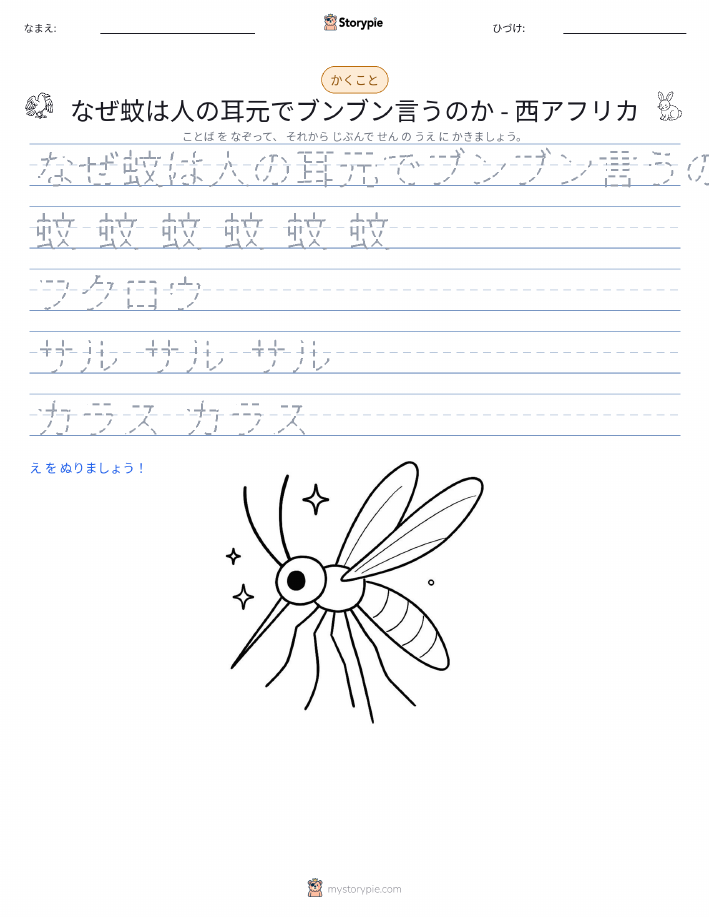 なまえ:
Storypie
ひづけ:
かくこと
なぜ蚊は人の耳元でブンブン言うのか - 西アフリカ
ことば を なぞって、 それから じぶんで せん の うえ に かきましょう。
なぜ蚊は人の耳元でブンブン言うの
蚊 蚊 蚊 蚊 蚊 蚊
フクロウ
サル サル サル
カラス カラス
え を ぬりましょう！
mystorypie.com